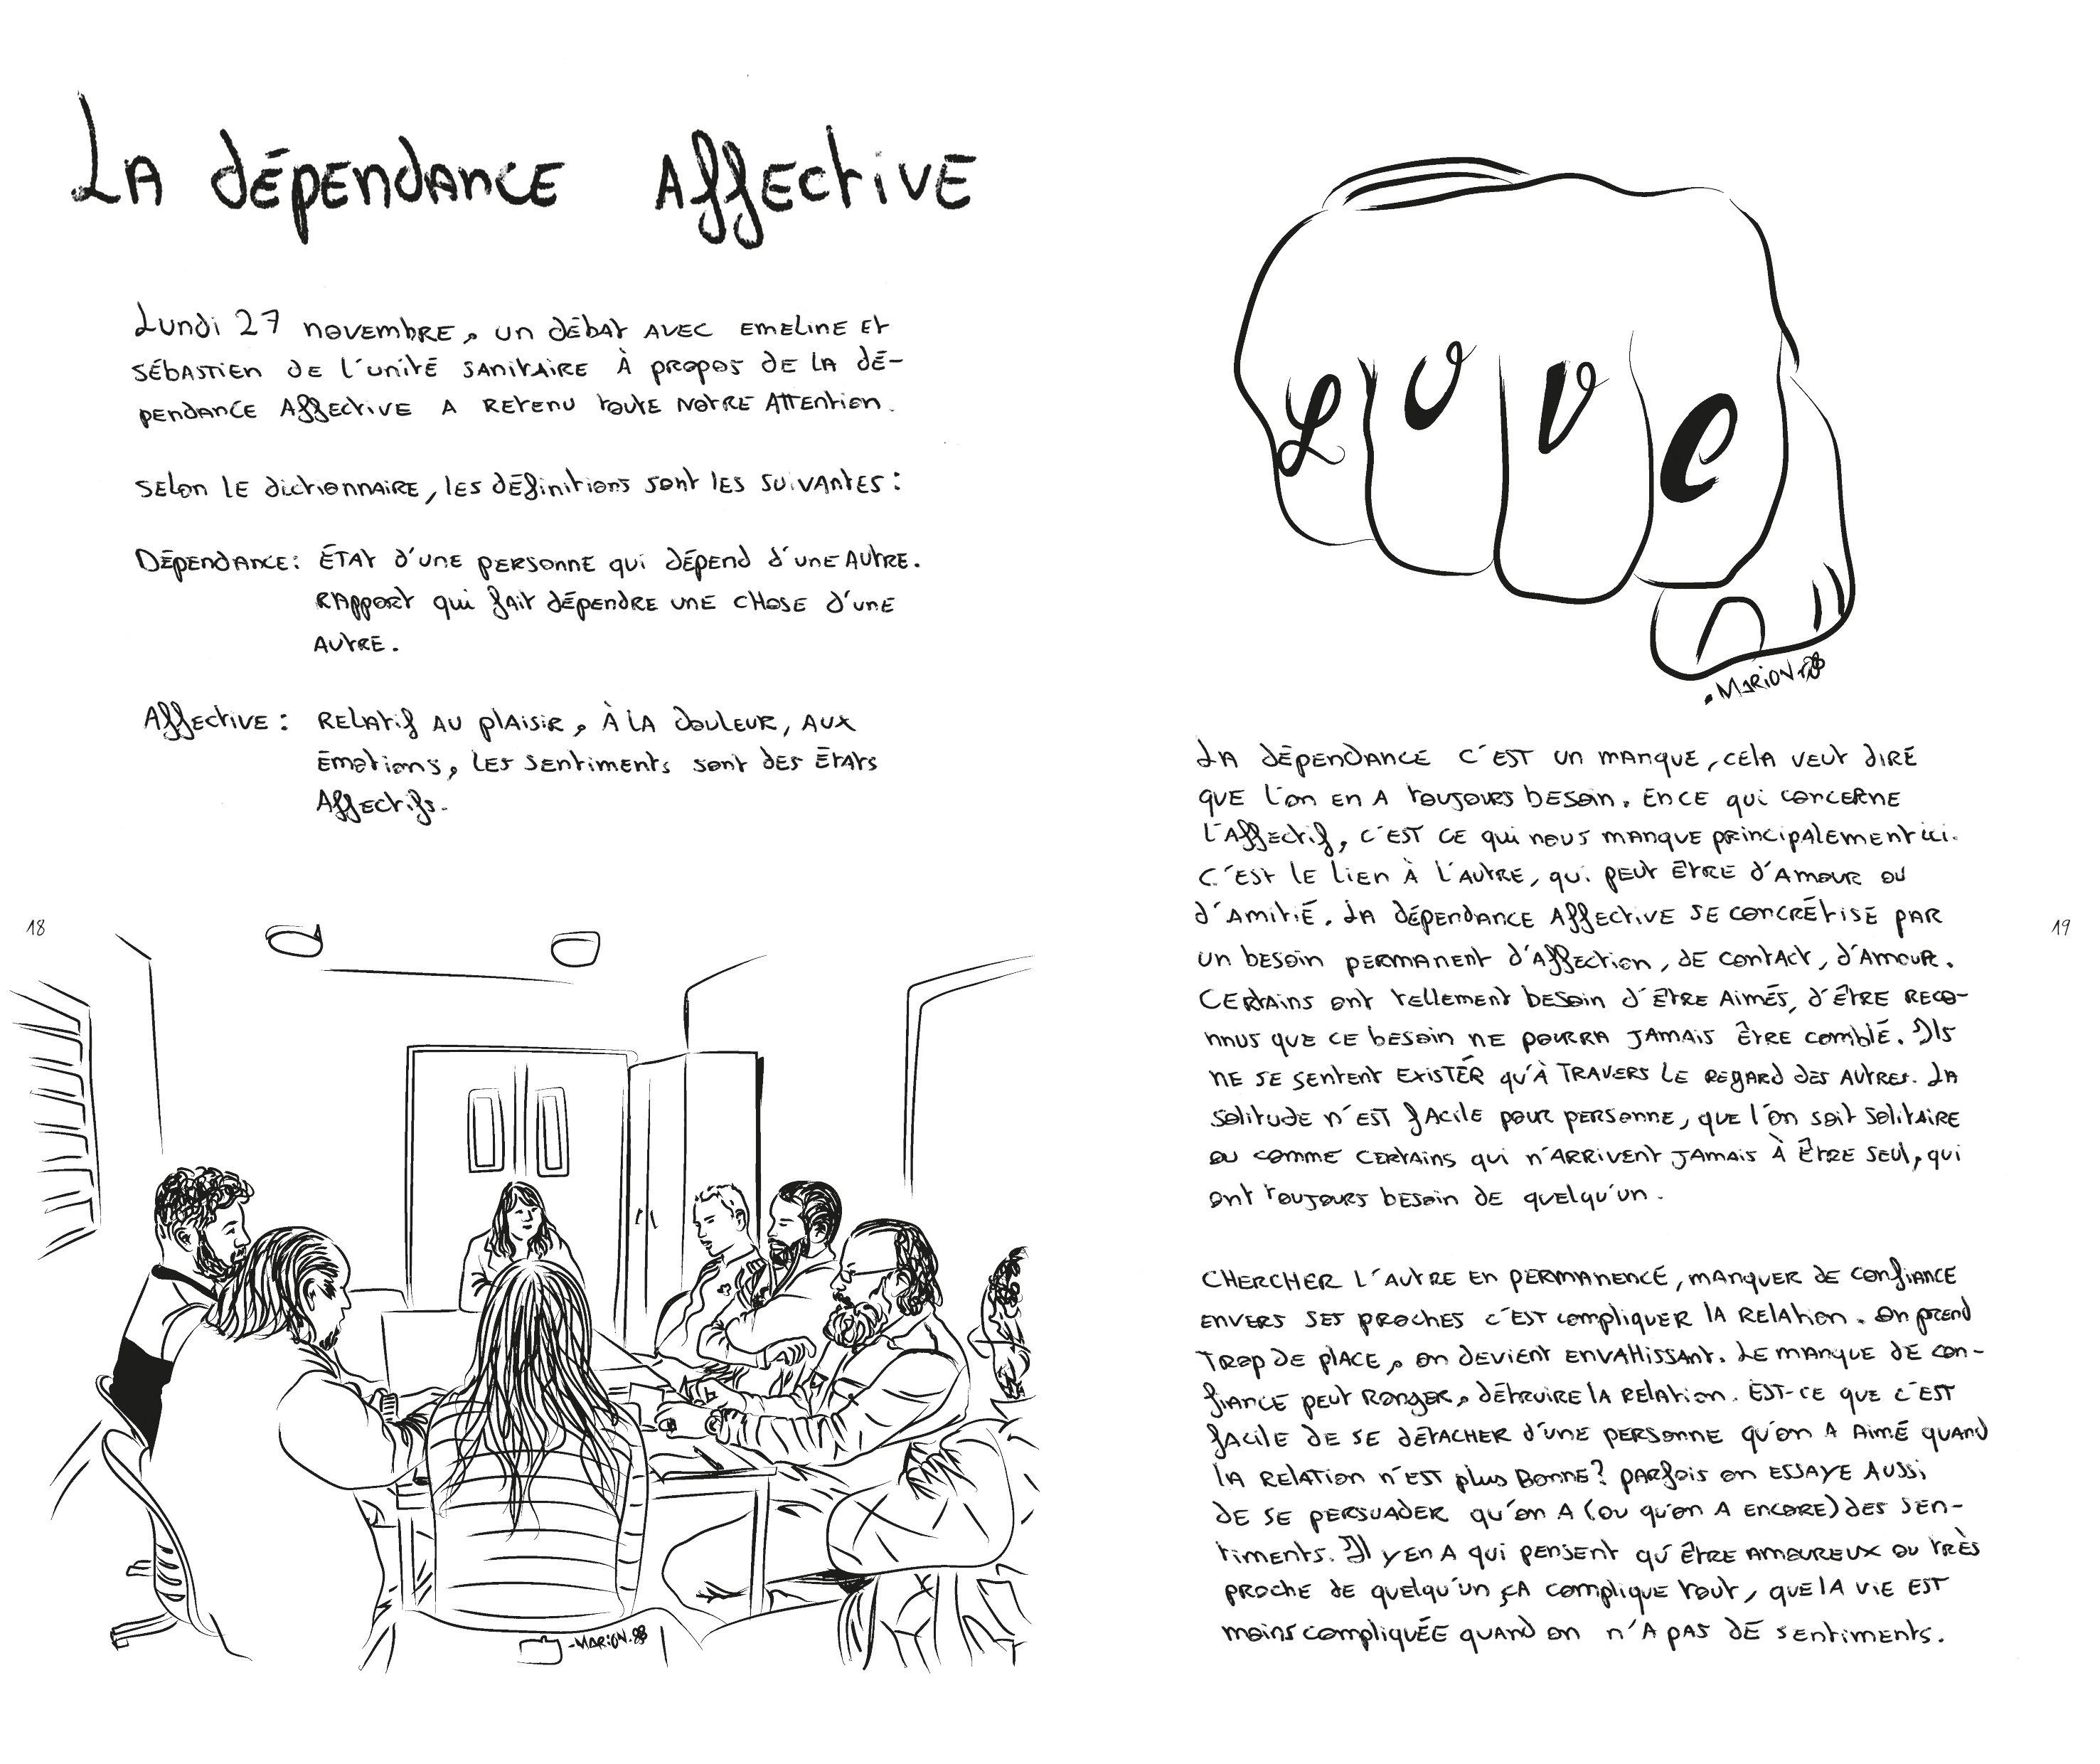 LA dépendance Affective
Lundi 27 novembre, un débat avec Emeline et
Sébastien de l'unité sanitaire à propos de la dé-
pendance affective a retenu toute notre attention.
Selon le dictionnaire, les définitions sont les suivantes :
Dépendance : État d'une personne qui dépend d'une autre.
Rapport qui fait dépendre une chose d'une
autre.
Affective : Relatif au plaisir, à la douleur, aux
émotions, les sentiments sont des états
affectifs.
18
-MARION.88
LOVE
.MARION.88
La dépendance c'est un manque, cela veut dire
que l'on en a toujours besoin. En ce qui concerne
l'affectif, c'est ce qui nous manque principalement ici.
C'est le lien à l'autre, qui peut être d'amour ou
d'amitié. La dépendance affective se concrétise par
un besoin permanent d'affection, de contact, d'amour.
Certains ont tellement besoin d'être aimés, d'être reco-
nnus que ce besoin ne pourra jamais être comblé. Ils
ne se sentent existér qu'à travers le regard des autres. La
solitude n'est facile pour personne, que l'on soit solitaire
ou comme certains qui n'arrivent jamais à être seul, qui
ont toujours besoin de quelqu'un.
Chercher l'autre en permanence, manquer de confiance
envers ses proches c'est compliquer la relation. On prend
trop de place, on devient envahissant. Le manque de con-
fiance peut ronger, détruire la relation. Est-ce que c'est
facile de se détacher d'une personne qu'on a aimé quand
la relation n'est plus bonne ? Parfois on essaye aussi
de se persuader qu'on a (ou qu'on a encore) des sen-
timents. Il y en a qui pensent qu'être amoureux ou très
proche de quelqu'un ça complique tout, que la vie est
moins compliquée quand on n'a pas de sentiments.
19